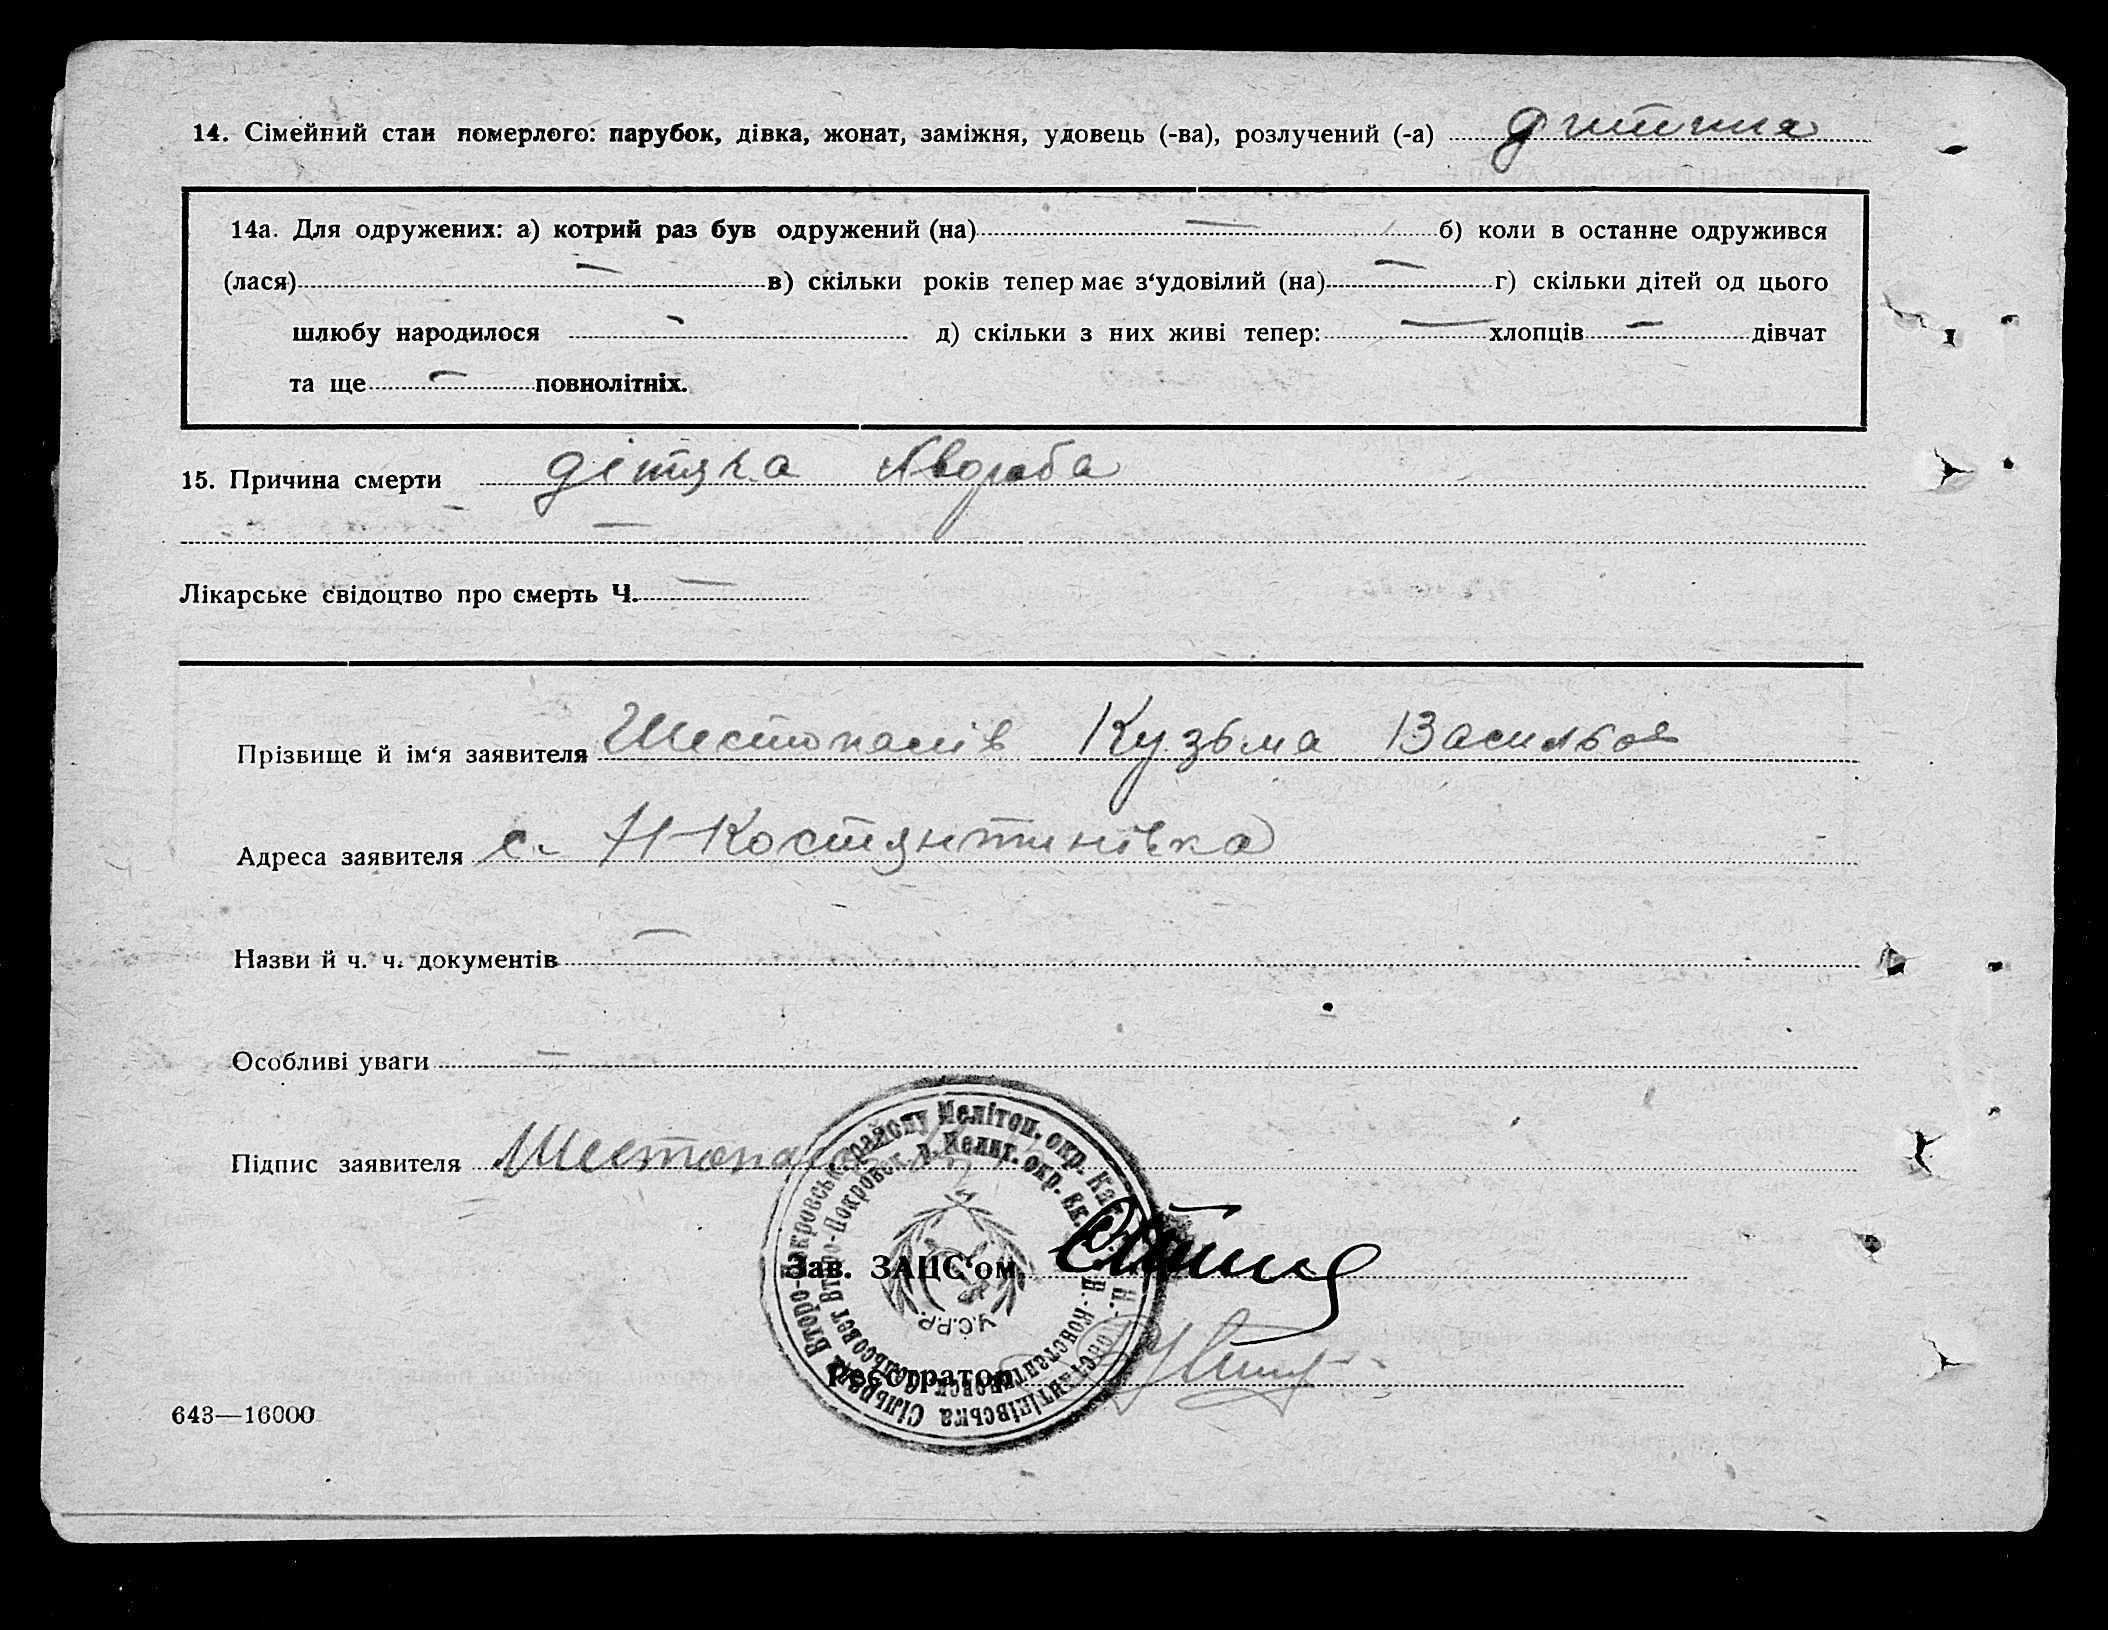 14. Сімейний стан померлого: парубок, дівка, жонат, заміжня, удовець (-ва), розлучений (-а) дитина
14а. Для одружених: а) котрий раз був одружений (на) — б) коли в останнє одружився
(лася) — в) скільки років тепер має з‘удовілий (на) — г) скільки дітей од цього
шлюбу народилося — д) скільки з них живі тепер: — хлопців — дівчат
та ще — повнолітніх.
15. Причина смерти дітяча хвороба
—
Лікарське свідоцтво про смерть Ч. —
Прізвище й ім‘я заявителя Шестопалів Кузьма Васильов
Адреса заявителя с. Н-Костянтинівка
Назви й ч. ч. документів —
Особливі уваги —
Підпис заявителя
Мелітоп. окр.
У.С.Р.Р.
Зав. ЗАЦС‘ом
Реєстратор
643—16000